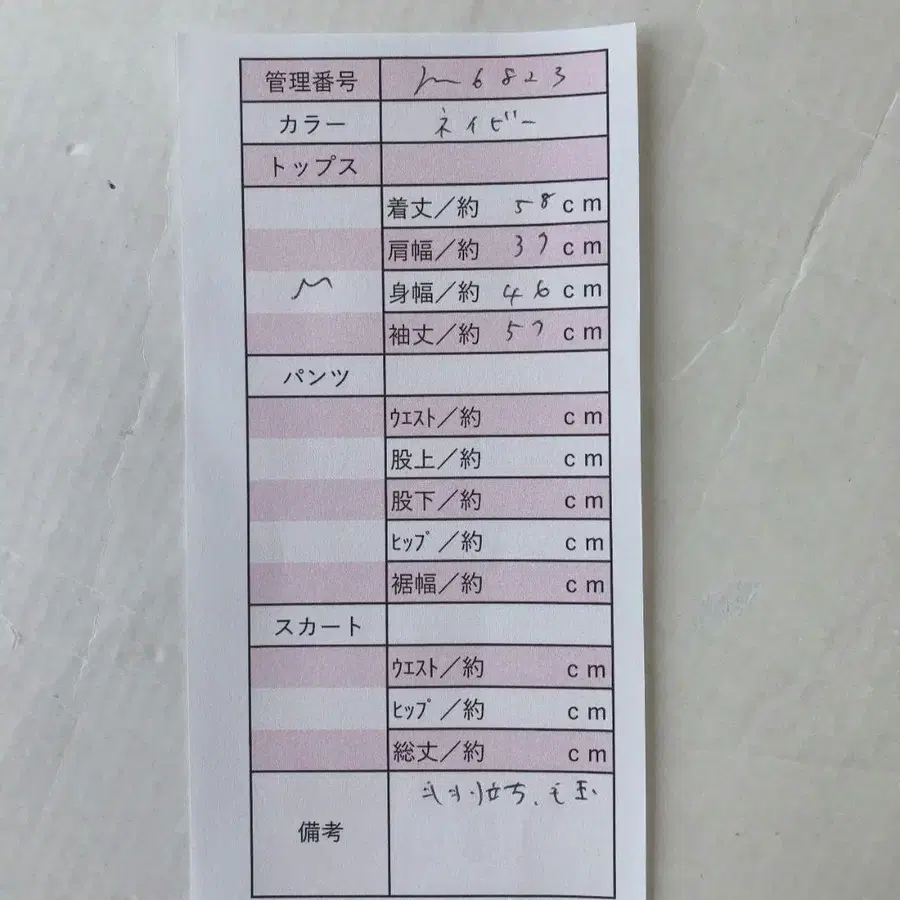 管理番号 m6823
カラー ネイビー
トップス
着丈／約 58cm
肩幅／約 37cm
M 身幅／約 46cm
袖丈／約 57cm
パンツ
ｳｴｽﾄ／約 cm
股上／約 cm
股下／約 cm
ﾋｯﾌﾟ／約 cm
裾幅／約 cm
スカート
ｳｴｽﾄ／約 cm
ﾋｯﾌﾟ／約 cm
総丈／約 cm
備考 毛羽立ち、毛玉